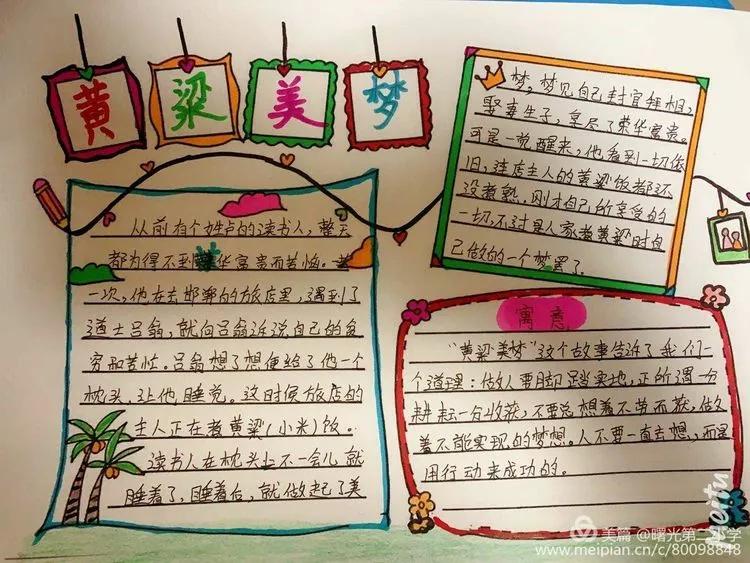 黄粱美梦
从前有个姓卢的读书人，整天
都为得不到荣华富贵而苦恼。有
一次，他在去邯郸的旅店里，遇到了
道士吕翁，就向吕翁诉说自己的贫
穷和苦忙。吕翁想了想便给了他一个
枕头，让他睡觉。这时候旅店的
主人正在煮黄粱(小米)饭。
读书人在枕头上不一会儿就
睡着了，睡着后，就做起了美
梦，梦见自己封官拜相，
娶妻生子，享尽了荣华富贵。
可是一觉醒来，他看到一切依
旧，连店主人的黄粱饭都还
没煮熟。刚才自己所享受的
一切不过是人家煮黄粱时自
己做的一个梦罢了。
寓意
“黄粱美梦”这个故事告诉了我们一
个道理：做人要脚踏实地，正所谓一分
耕耘一分收获，不要总想着不劳而获，做
着不能实现的梦想。人不要一直去想，而是
用行动来成功的。
Meertu
美篇 @曙光第二小学
www.meipian.cn/c/80098848